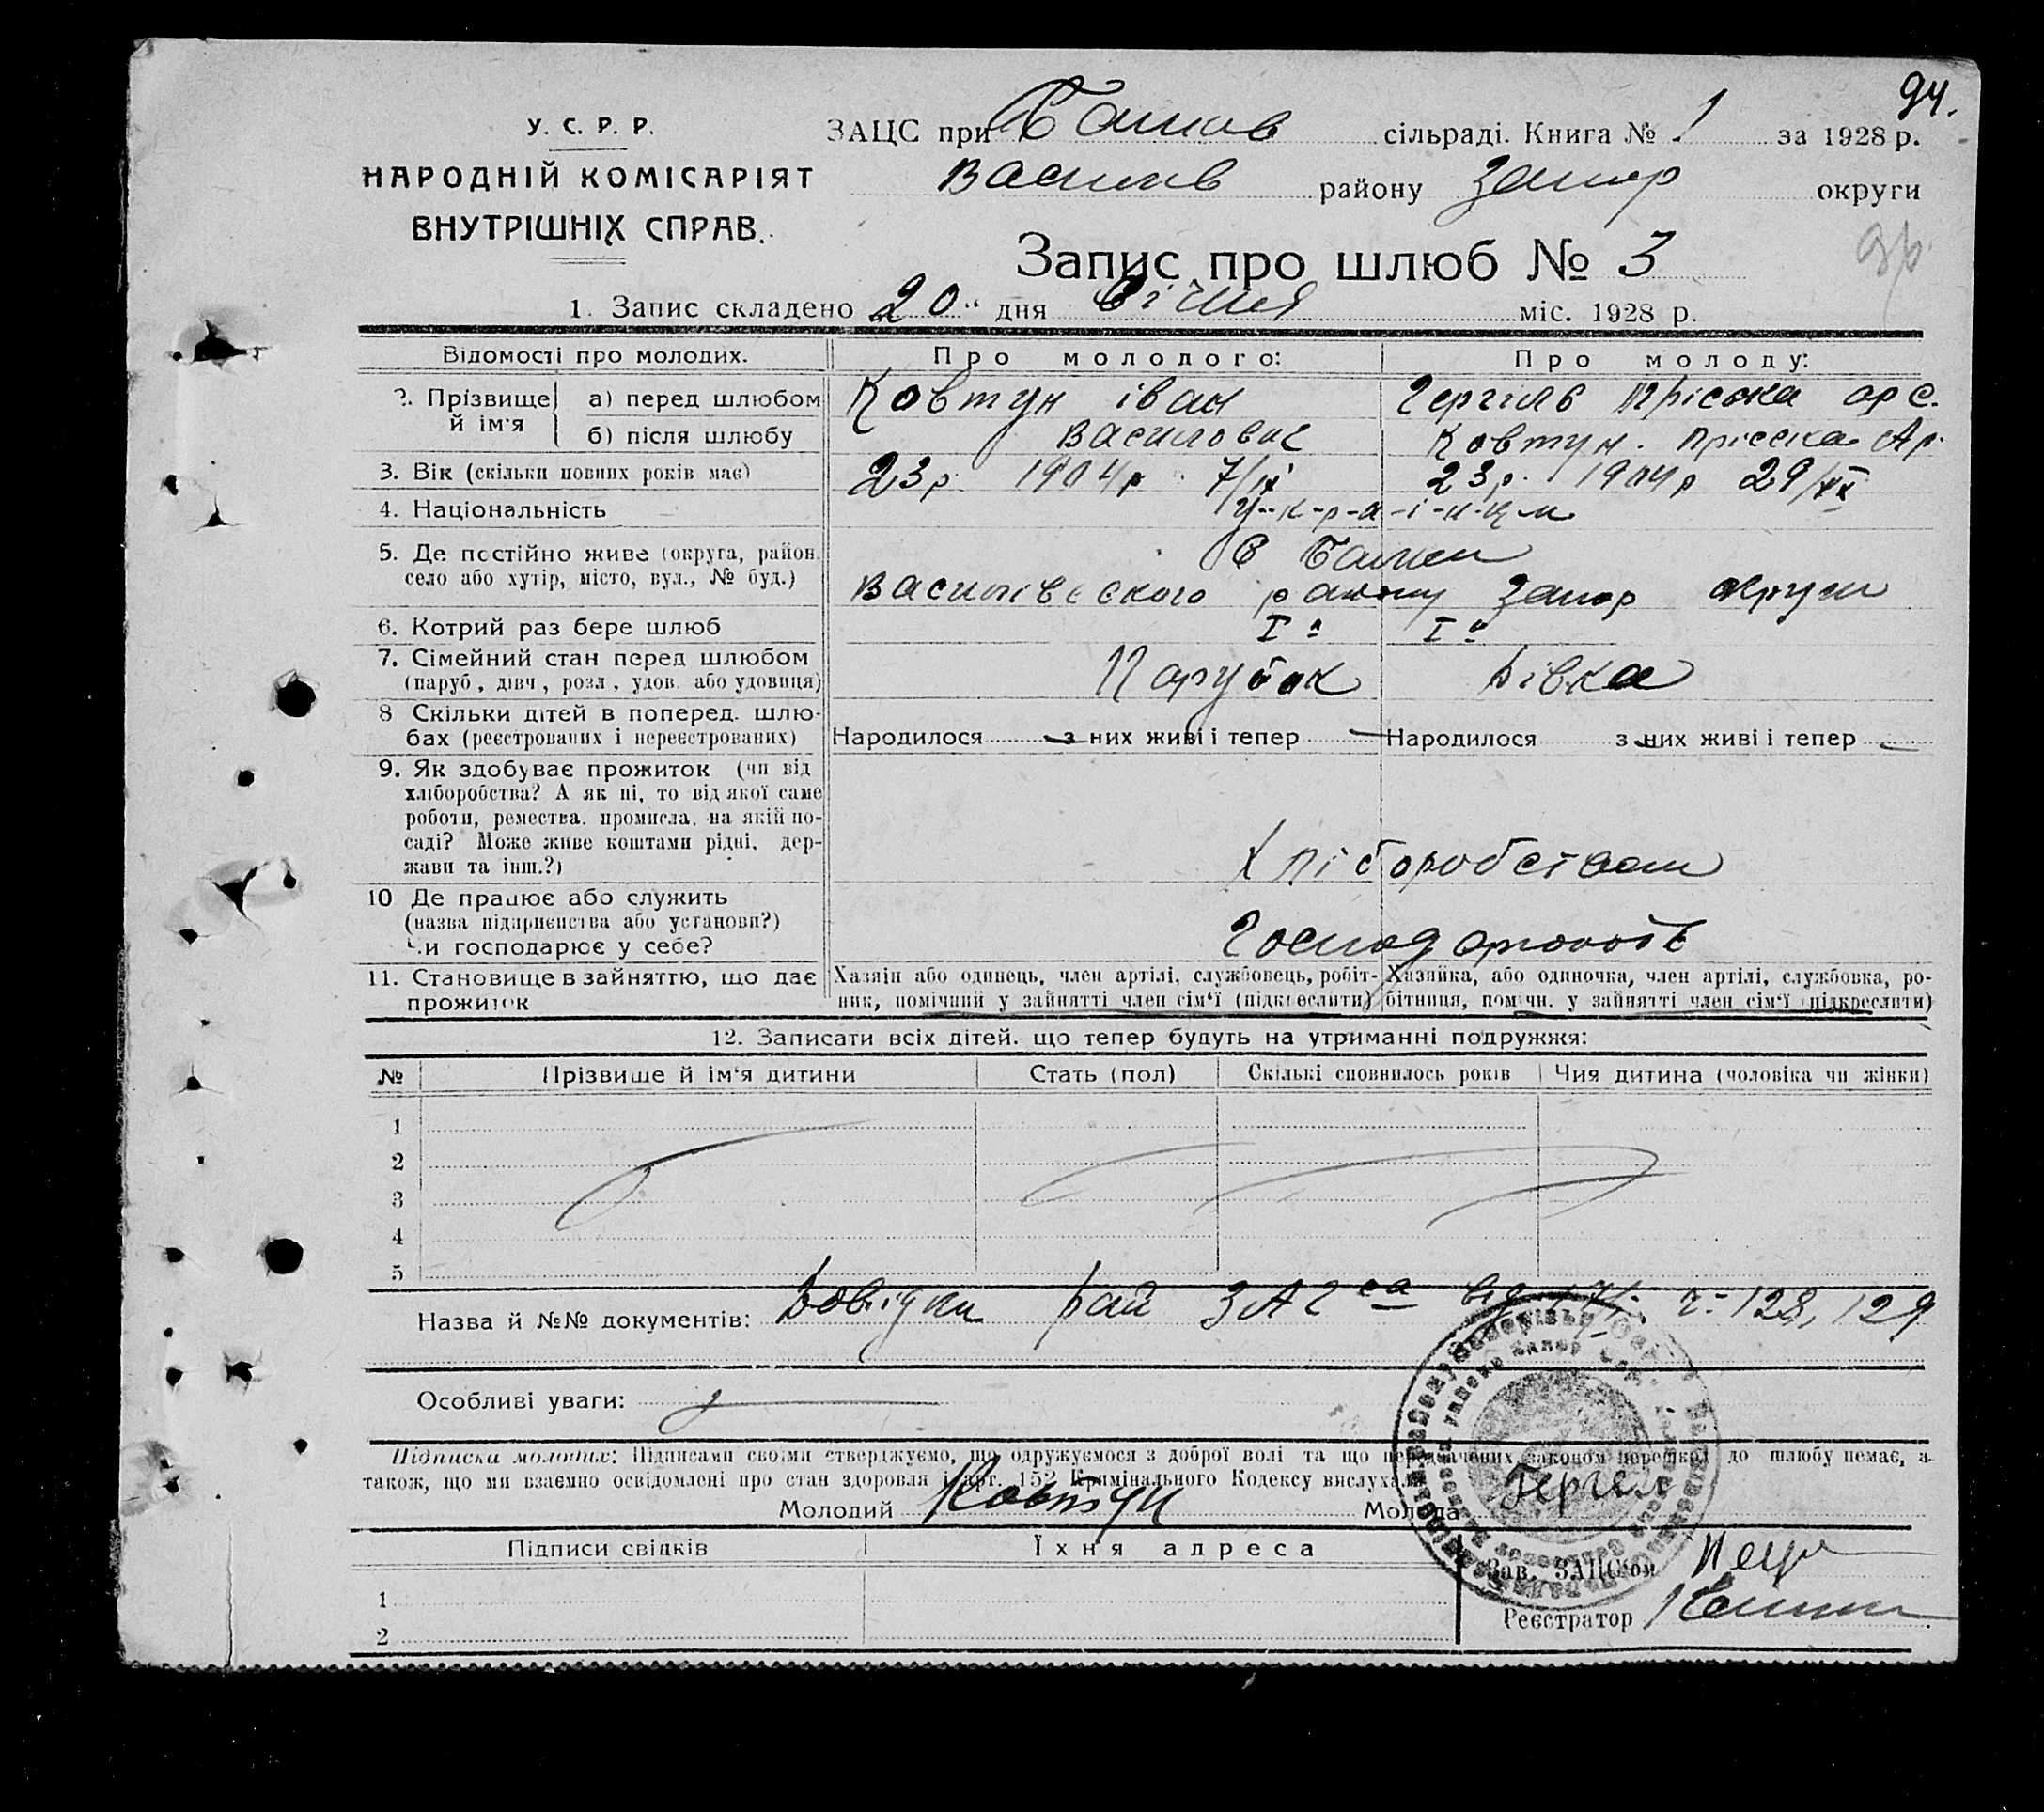 94.
У. С. Р. Р.
НАРОДНІЙ КОМІСАРІЯТ
ВНУТРІШНІХ СПРАВ.
ЗАЦС при Балков сільраді. Книга № 1 за 1928 р.
Василів району Запор округи
Запис про шлюб № 3
1. Запис складено 20 " дня січня міс. 1928 р.
Відомості про молодих. Про молодого: Про молоду:
2. Прізвище й ім'я а) перед шлюбом Ковтун іван Гергиль Пріська арс.
б) після шлюбу Василович Ковтун. Пріська Ар.
3. Вік (скільки повних років має) 23р 1904р 7/ІХ 23р. 1904р 29/
4. Національність у-к-р-а-ї-н-ц-и
5. Де постійно живе (округа, район, село або хутір, місто, вул., № буд.) С Балки
Василівського району Запор округи
6. Котрий раз бере шлюб І а І а
7. Сімейний стан перед шлюбом (паруб., дівч., розл., удов. або удовиця) Парубок Дівка
8 Скільки дітей в поперед. шлюбах (реєстрованих і нереєстрованих) Народилося — з них живі і тепер — Народилося — з них живі і тепер —
9. Як здобуває прожиток (чи від
хліборобства? А як ні, то від якої саме
роботи, ремества, промисла, на якій по-
саді? Може живе коштами рідні, дер-
жави та інш.?) Хліборобством
10 Де працює або служить
(назва підприємства або установи?)
Чи господарює у себе? Господарюють
11. Становище в зайняттю, що дає прожиток
Хазяїн або одинець, член артілі, службовець, робіт-
ник, помічний у зайнятті член сім'ї (підкреслити)
Хазяйка, або одиночка, член артілі, службовка, ро-
бітниця, помічн. у зайнятті член сім'ї (підкреслити)
12. Записати всіх дітей, що тепер будуть на утриманні подружжя:
№ Прізвище й ім'я дитини Стать (пол) Скількі сповнилось років Чия дитина (чоловіка чи жінки)
1
2
3
4
5
Назва й №№ документів: Довідки Рай ЗАГса від ч. 128, 129
Особливі уваги:
Підписка молодих: Підписами своїми стверджуємо, що одружуємося з доброї волі та що передбачених законом перешкод до шлюбу немає, а
також, що ми взаємно освідомлені про стан здоровля і арт. 152 Кримінального Кодексу вислухали
Молодий Ковтун Молода Гергел
Підписи свідків Їхня адреса
1
2
Зав. ЗАЦС'ом
Реєстратор